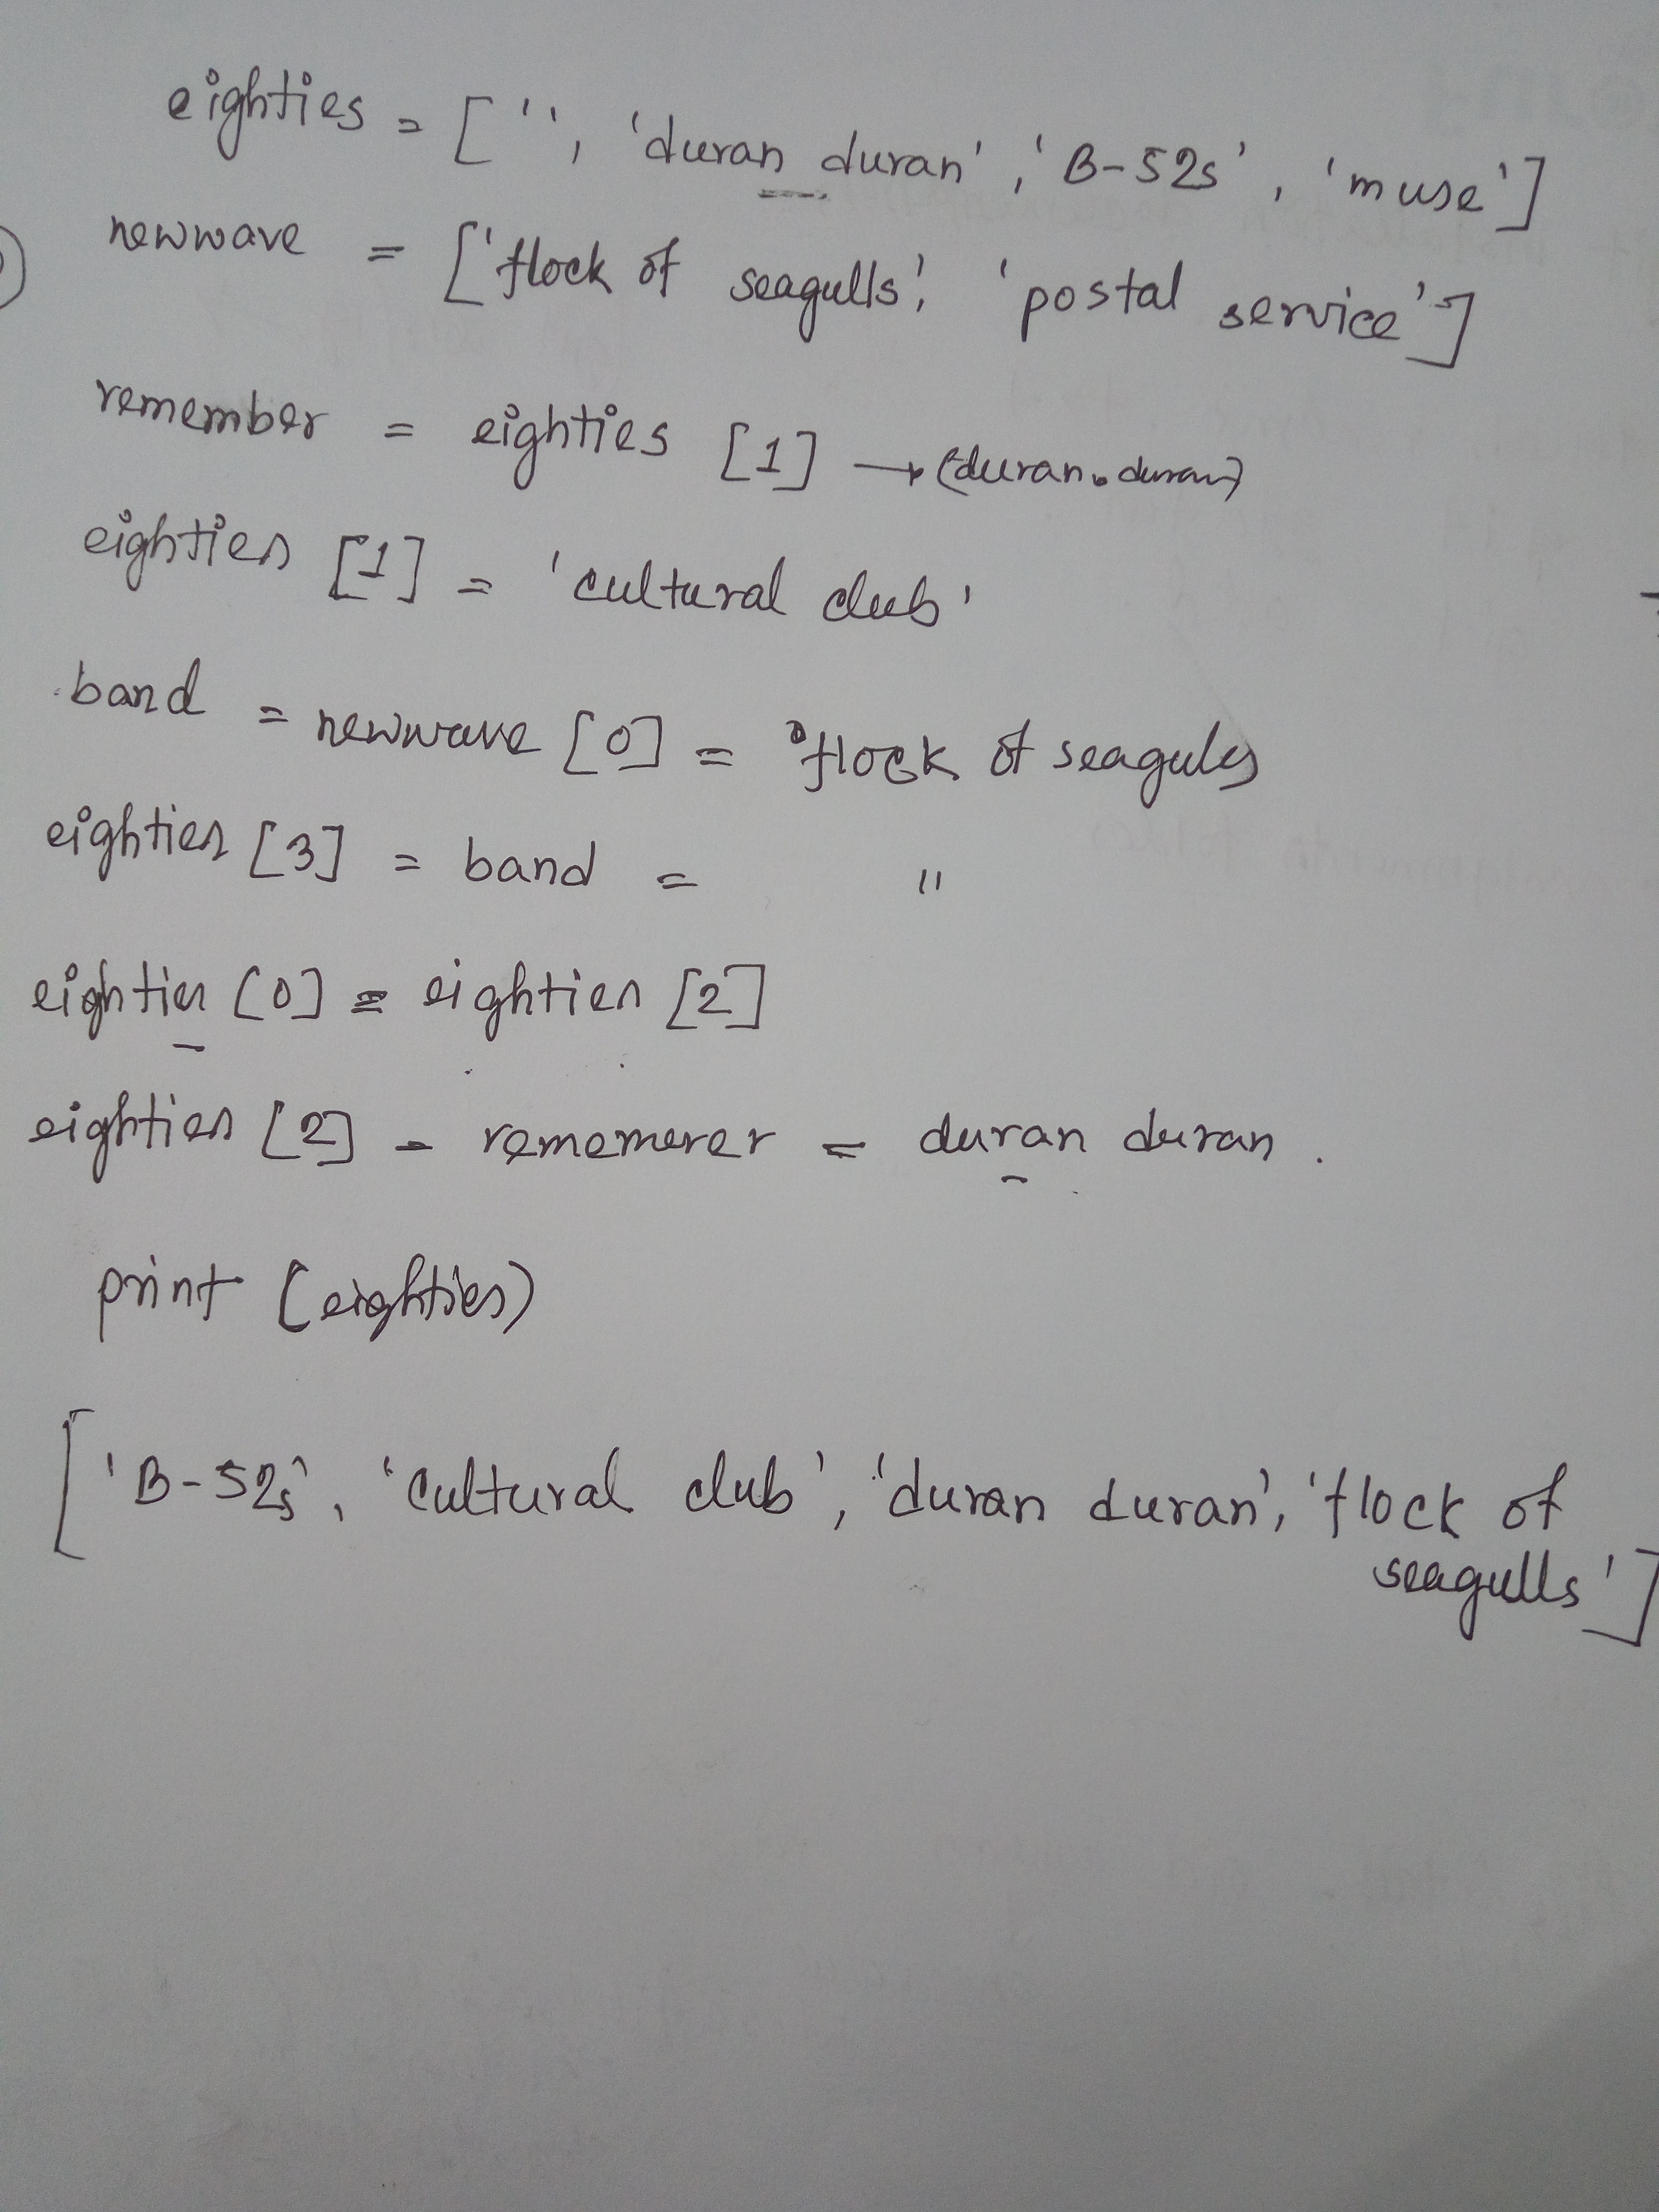 eighties = ['', 'duran duran', 'B-52s', 'muse']
newwave = ['flock of seagulls', 'postal service']
remember = eighties [1] → (duran duran)
eighties [1] = 'cultural club'
band = newwave [0] = flock of seagulls
eighties [3] = band = "
eighties [0] = eighties [2]
eighties [2] = rememerer = duran duran.
print (eighties)
['B-52s', 'cultural club', 'duran duran', 'flock of
seagulls']